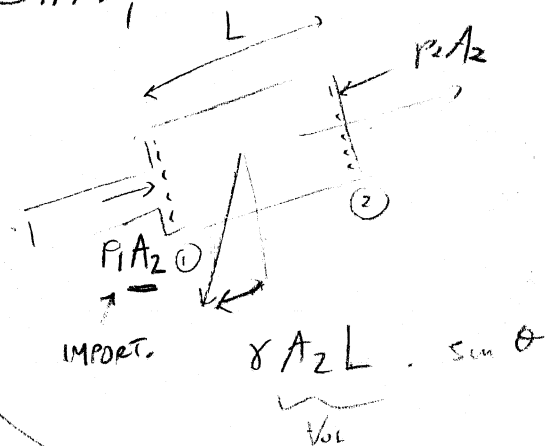 L
P₂A₂
②
P₁A₂ ①
IMPORT.
γ A₂ L . sin θ
Vol